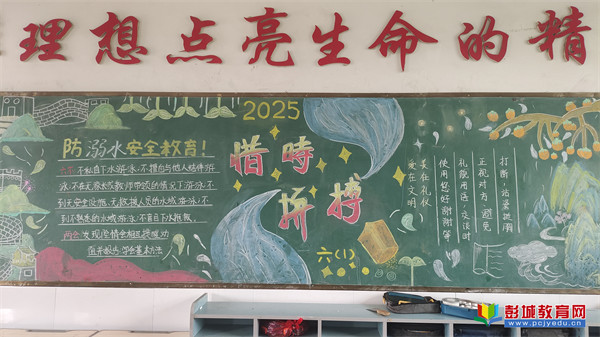 理想点亮生命的精
2025
惜時
拼搏
六(1)
防溺水安全教育！
六不：不私自下水游泳；不擅自与他人结伴游
泳；不在无家长或教师带领的情况下游泳；不
到无安全设施、无救援人员的水域游泳；不
到不熟悉的水域游泳；不盲目下水施救。
两会：发现险情会相互提醒、劝
美在礼仪
爱在文明
使用“您好”“谢谢”等
礼貌用语，交谈时
正视对方，避免
打断
彭城教育网
www.pcjyedu.cn